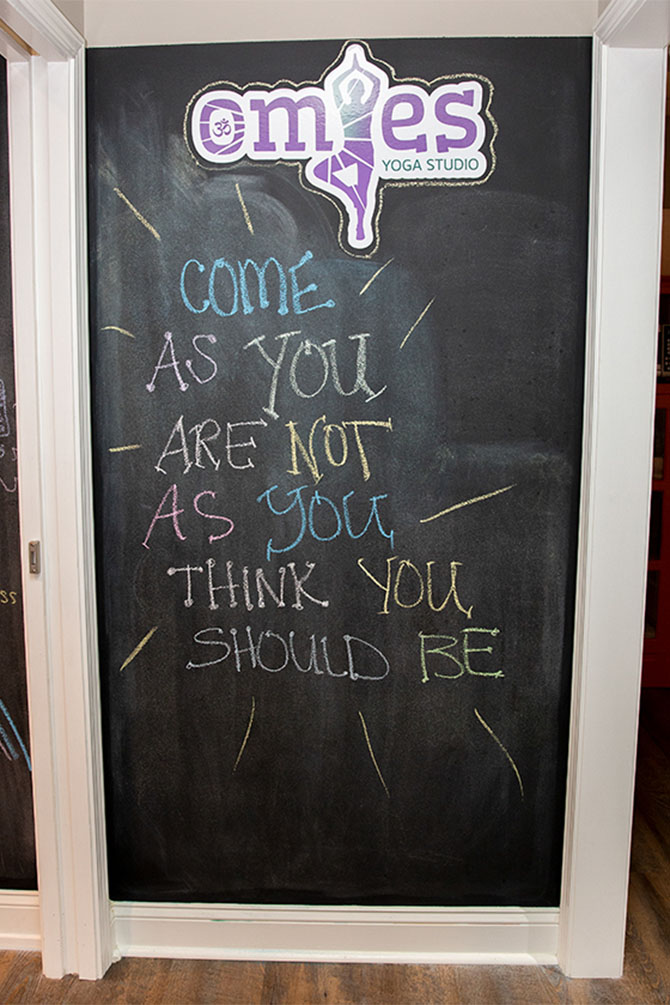 omies
YOGA STUDIO
COME
AS YOU
ARE NOT
AS YOU
THINK YOU
SHOULD BE
ss